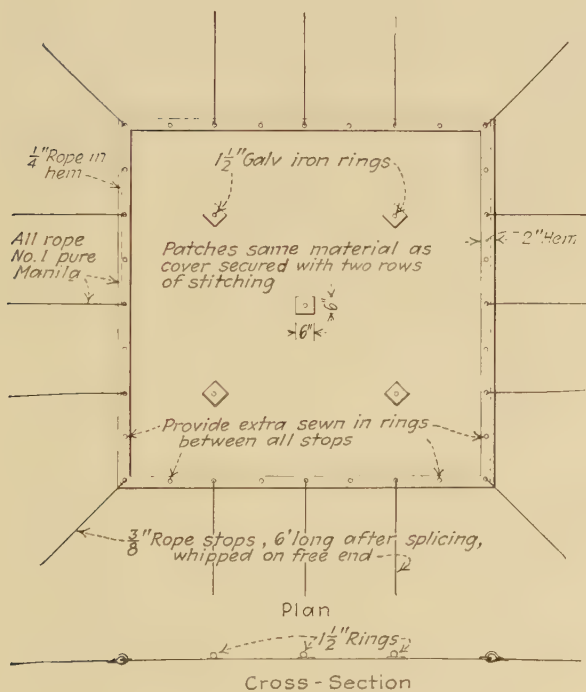 1/4" Rope in
hem
1 1/2" Galv iron rings
2" Hem
All rope
No. 1 pure
Manila
Patches same material as
cover secured with two rows
of stitching
6"
6"
Provide extra sewn in rings
between all stops
3/8" Rope stops, 6' long after splicing,
whipped on free end
Plan
1 1/2" Rings
Cross-Section